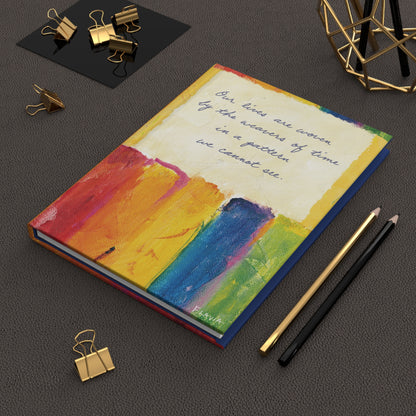 Our lives are woven
by the weavers of time
in a pattern
we cannot see.